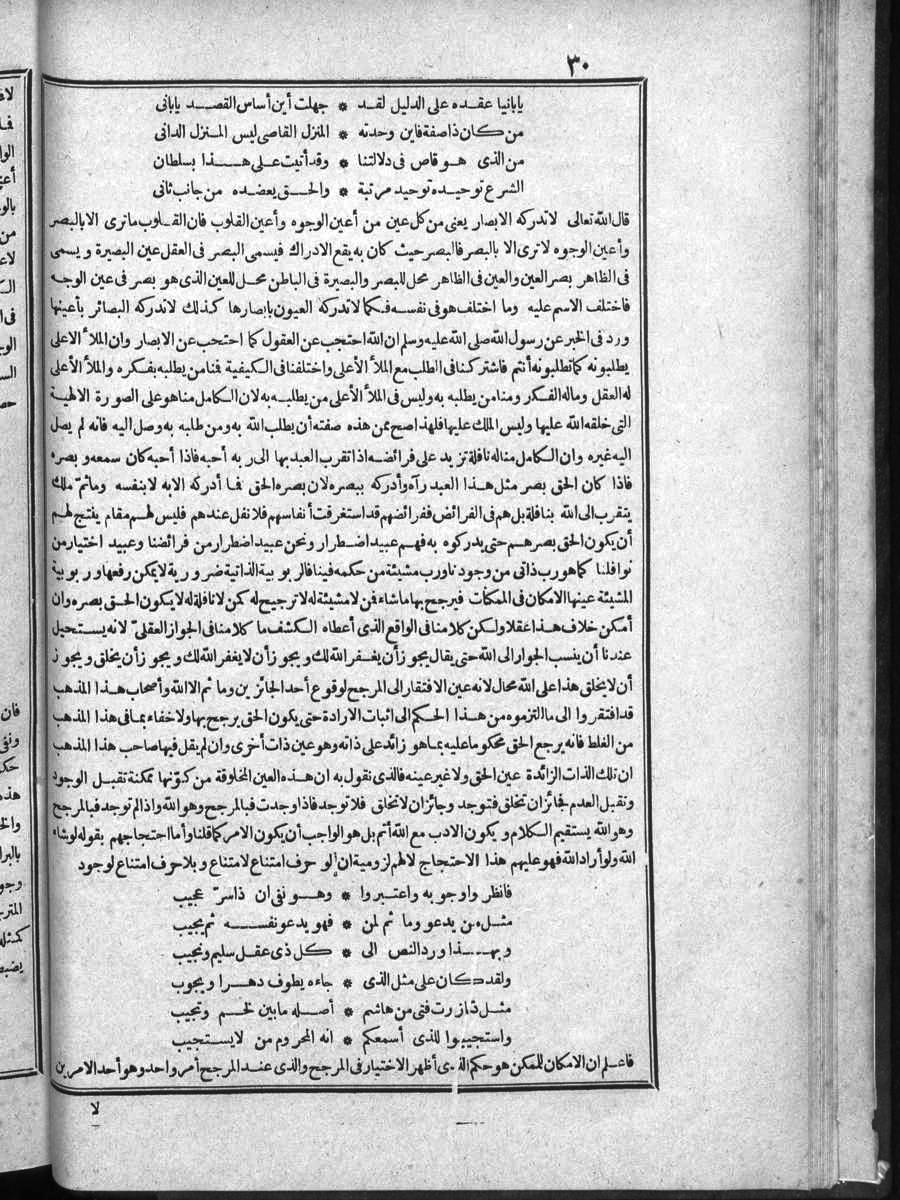 ٣٠
يابانيا عقده على الدليل لقد * جهلت أين أساس القصد يابانى
من كان ذا صفة فاين وحدته * المنزل القاصى ليس المنزل الدانى
من الذى هو قاص فى دلالتنا * وقد أتيت على هذا بسلطان
الشرع توحيده توحيد مرتبة * والحق يعضده من جانب ثانى
قال الله تعالى لا تدركه الابصار يعنى من كل عين من أعين الوجوه وأعين القلوب فان القلوب ما ترى الا بالبصر
وأعين الوجوه لا ترى الا بالبصر فالبصر حيث كان به يقع الادراك فيسمى البصر فى العقل عين البصيرة ويسمى
فى الظاهر بصر العين والعين فى الظاهر محل للبصر والبصيرة فى الباطن محل للعين الذى هو بصر فى عين الوجه
فاختلف الاسم عليه وما اختلف هو فى نفسه فكما لا تدركه العيون بابصارها كذلك لا تدركه البصائر بأعينها
ورد فى الخبر عن رسول الله صلى الله عليه وسلم ان الله احتجب عن العقول كما احتجب عن الابصار وان الملأ الاعلى
يطلبونه كما تطلبونه أنتم فاشتركنا فى الطلب مع الملأ الأعلى واختلفنا فى الكيفية فمنا من يطلبه بفكره والملأ الأعلى
له العقل وماله الفكر ومنا من يطلبه به وليس فى الملأ الأعلى من يطلبه به لان الكامل منا هو على الصورة الالهية
التى خلقه الله عليها وليس الملك عليها فلهذا صح ممن هذه صفته أن يطلب الله به ومن طلبه به وصل اليه فانه لم يصل
اليه غيره وان الكامل مناله نافلة تزيد على فرائضه اذا تقرب العبد بها الى ربه أحبه فاذا أحبه كان سمعه وبصره
فاذا كان الحق بصر مثل هذا العبد رآه وأدركه ببصره لان بصره الحق فما أدركه الا به لا بنفسه وما ثم ملك
يتقرب الى الله بنافلة بل هم فى الفرائض ففرائضهم قد استغرقت أنفاسهم فلا نفل عندهم فليس لهم مقام ينتج لهم
أن يكون الحق بصرهم حتى يدركوه به فهم عبيد اضطرار ونحن عبيد اضطرار من فرائضنا وعبيد اختيار من
نوافلنا كما هو رب ذاتى من وجودنا ورب مشيئة من حكمه فينا فالربوبية الذاتية ضرورية لا يمكن رفعها وربوبية
المشيئة عينها الامكان فى الممكنات فيرجح بها ما شاء فمن لا مشيئة له لا ترجيح له كمن لا نافلة له لا يكون الحق بصره وان
أمكن خلاف هذا عقلا ولكن كلامنا فى الواقع الذى أعطاه الكشف ما كلامنا فى الجواز العقلىّ لانه يستحيل
عندنا أن ينسب الجواز الى الله حتى يقال يجوز أن يغفر الله لك ويجوز أن لا يغفر الله لك ويجوز أن يخلق ويجوز
أن لا يخلق هذا على الله محال لانه عين الافتقار الى المرجح لوقوع أحد الجائزين وما ثم الا الله وأصحاب هذا المذهب
قد افتقروا الى ما التزموه من هذا الحكم الى اثبات الارادة حتى يكون الحق يرجح بها ولا خفاء بما فى هذا المذهب
من الغلط فانه يرجع الحق محكوما عليه بما هو زائد على ذاته وهو عين ذات أخرى وان لم يقل فيها صاحب هذا المذهب
ان تلك الذات الزائدة عين الحق ولا غير عينه فالذى نقول به ان هذه العين المخلوقة من كونها ممكنة تقبل الوجود
وتقبل العدم فجائز ان تخلق فتوجد وجائز ان لا تخلق فلا توجد فاذا وجدت فبالمرجح وهو الله واذا لم توجد فبالمرجح
وهو الله يستقيم الكلام ويكون الادب مع الله أتم بل هو الواجب أن يكون الامر كما قلنا وأما احتجاجهم بقوله لو شاء
الله ولو أراد الله فهو عليهم هذا الاحتجاج لا لهم لزومية ان لو حرف امتناع لامتناع وبلا حرف امتناع لوجود
فانظر واوجو به واعتبروا * وهو نفى ان ذا سرّ عجيب
مثل من يدعو وما ثم لمن * فهو يدعو نفسه ثم يجيب
وبهذا ورد النص الى * كل ذى عقل سليم ونجيب
ولقد كان على مثل الذى * جاءه يطوف دهرا ويجوب
مثل ذا زرت فتى من هاشم * أصله ما بين لخم وتجيب
واستجيبوا للذى أسمعكم * انه المحروم من لا يستجيب
فاعلم ان الامكان للممكن هو حكم الذى أظهر الاختيار فى المرجح والذى عند المرجح أمر واحد وهو أحد الامرين
لا